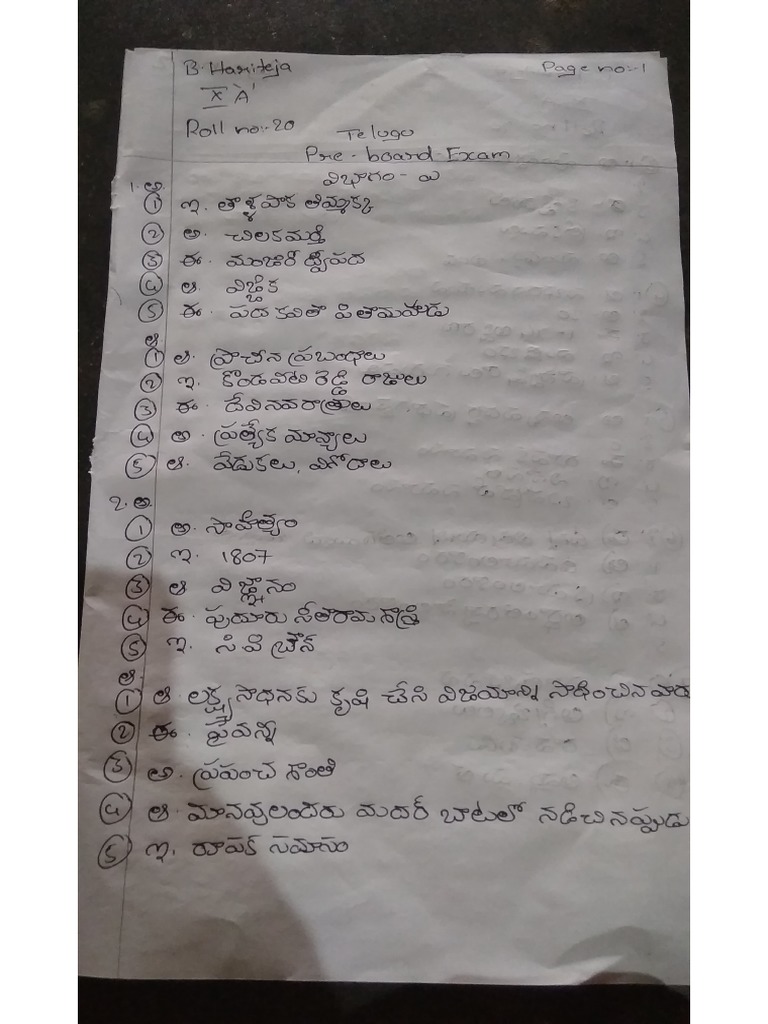 B. Hariteja Page no:-1
X 'A'
Roll no:-20 Telugu
Pre-board Exam
విభాగం - ఎ
1. అ.
① ఇ. తాళ్ళపాక తిమ్మక్క
② అ. చిలకమర్తి
③ ఈ. మంజరీ ద్విపద
④ ఆ. విజ్జిక
⑤ ఈ. పద కవితా పితామహుడు
ఆ.
① ఆ. ప్రాచీన ప్రబంధాలు
② ఇ. కొండవీటి రెడ్డి రాజులు
③ ఈ. దేవినవరాత్రులు
④ అ. ప్రత్యేక మాన్యాలు
⑤ ఆ. వేడుకలు, వినోదాలు
2. అ.
① అ. సాహిత్యం
② ఇ. 1807
③ ఆ. విజ్ఞానం
④ ఈ. పుదూరు సీతారామ శాస్త్రి
⑤ ఇ. సి.పి బ్రౌన్
ఆ.
① ఆ. లక్ష్య సాధనకు కృషి చేసి విజయాన్ని సాధించిన వారు
② ఈ. పైవన్నీ
③ అ. ప్రపంచ శాంతి
④ ఆ. మానవులందరు మదర్ బాటలో నడిచినప్పుడు
⑤ ఇ. రూపక సమాసం